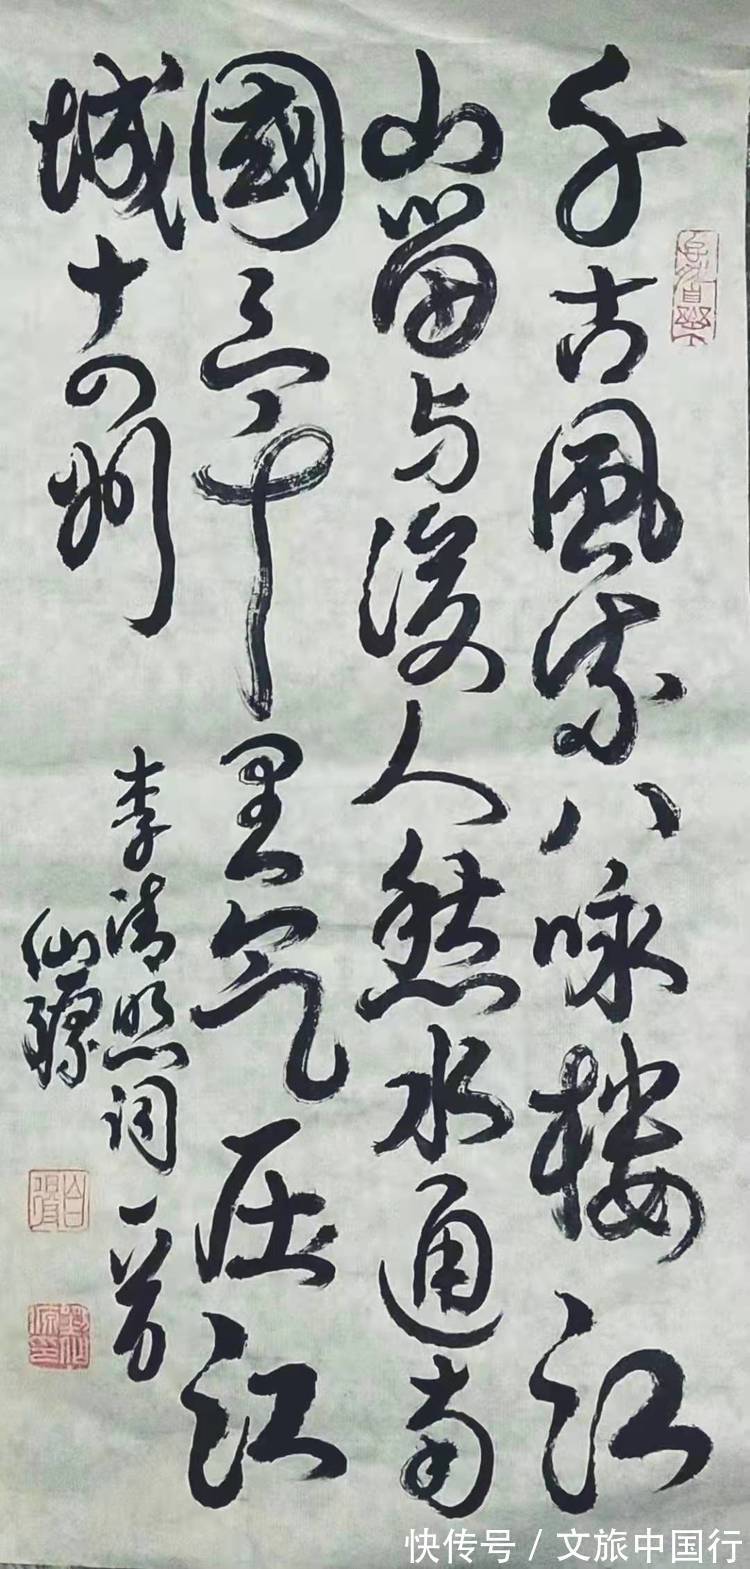 千古風流八咏楼江
山留与後人愁水通南
國三千里气压江
城十四州
李清照词一首
仙
快传号 / 文旅中国行